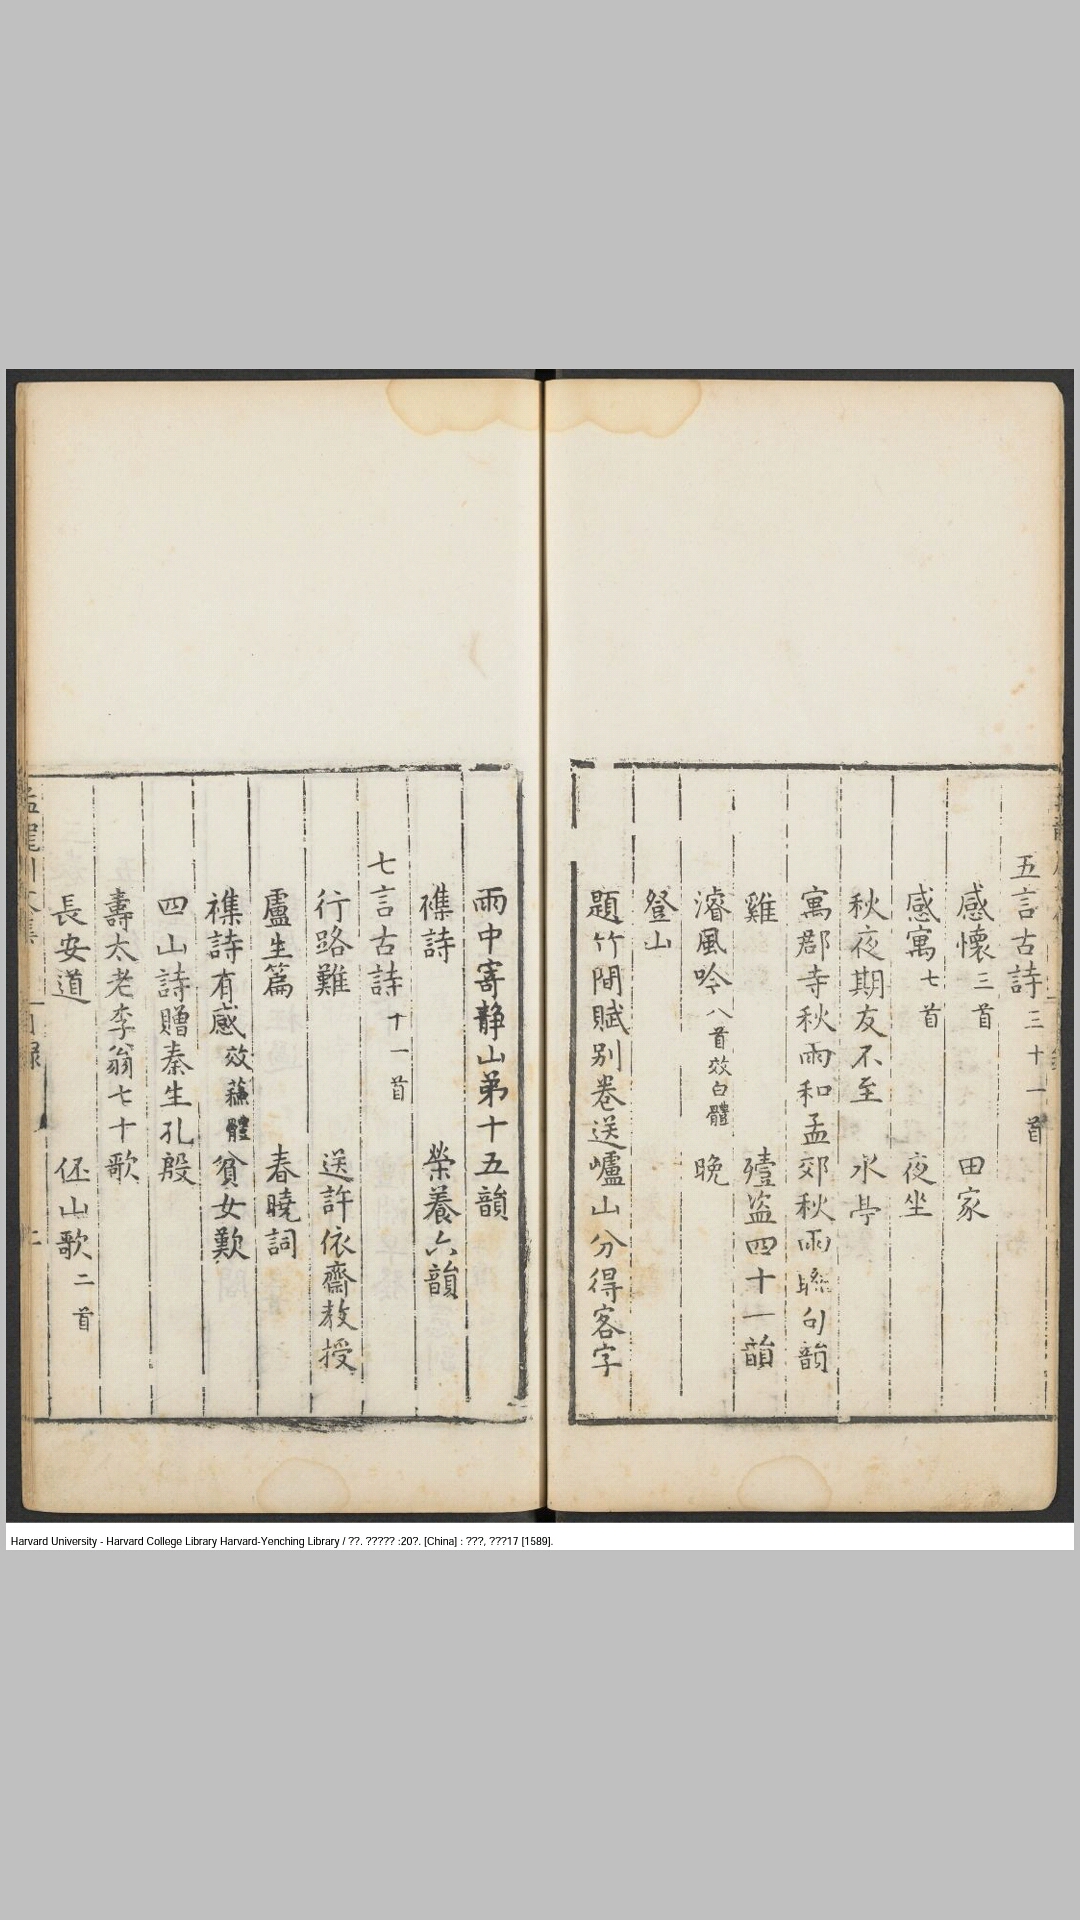 五言古詩三十一首
感懷三首 田家
感寓七首 夜坐
秋夜期友不至 水亭
寓郡寺秋雨和孟郊秋雨聯句韻
雞 殪盗四十一韻
濬風吟八首效白體 晚
登山
題竹間賦别卷送嶇山分得客字
雨中寄静山弟十五韻
襍詩 榮養六韻
七言古詩十一首
行路難 送許依齋教授
盧生篇 春曉詞
襍詩有感效蘓體 貧女歎
四山詩贈秦生孔殷
壽太老李翁七十歌
長安道 伾山歌二首
Harvard University - Harvard College Library Harvard-Yenching Library / ??. ????? :20?. [China] : ???, ???17 [1589].